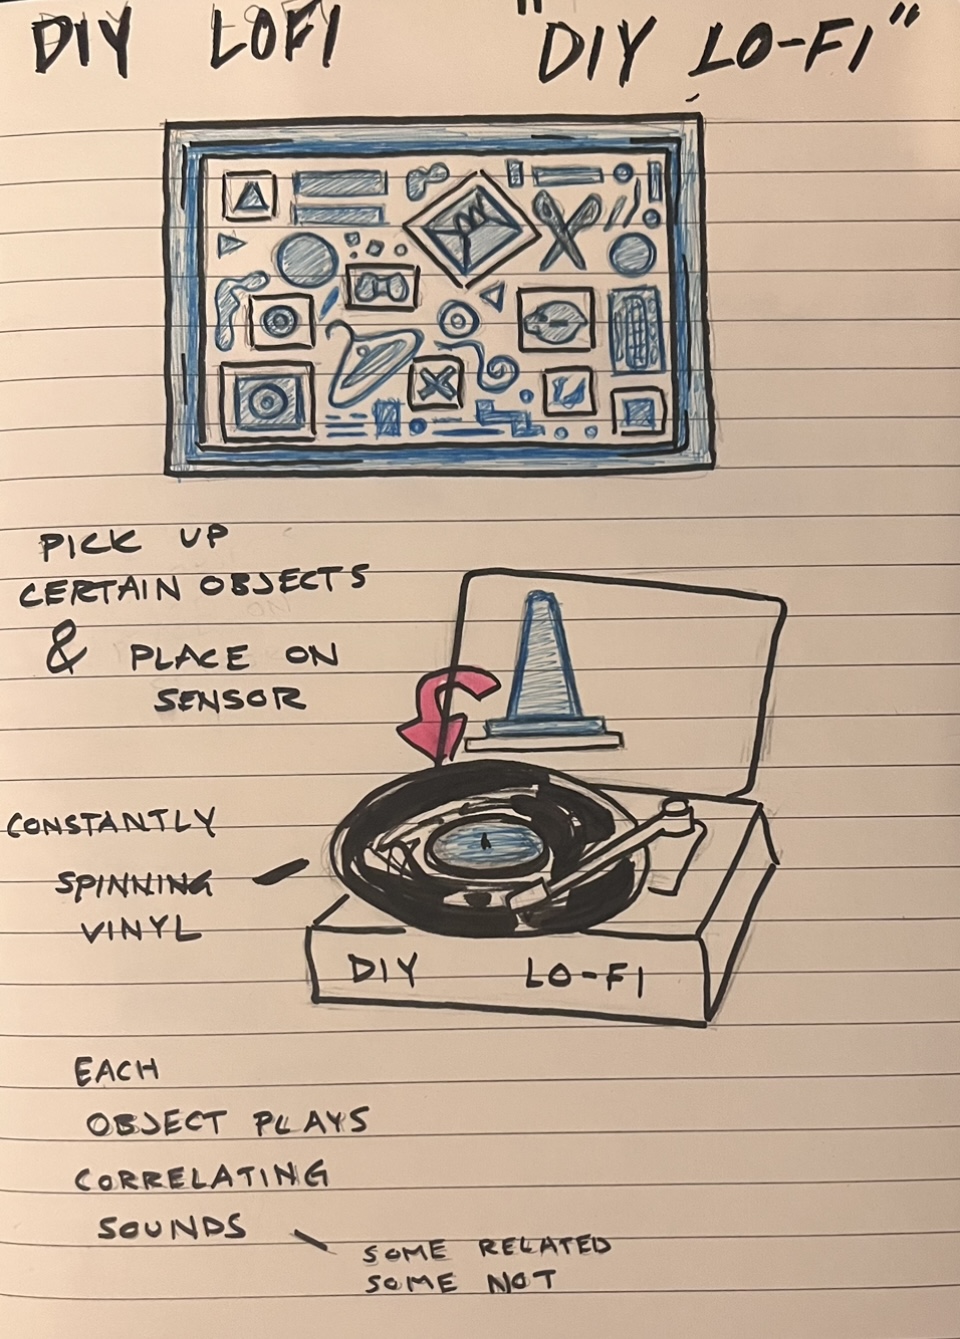 DIY LOFI "DIY LO-FI"
PICK UP
CERTAIN OBJECTS
& PLACE ON
SENSOR
CONSTANTLY
SPINNING
VINYL
DIY LO-FI
EACH
OBJECT PLAYS
CORRELATING
SOUNDS
SOME RELATED
SOME NOT